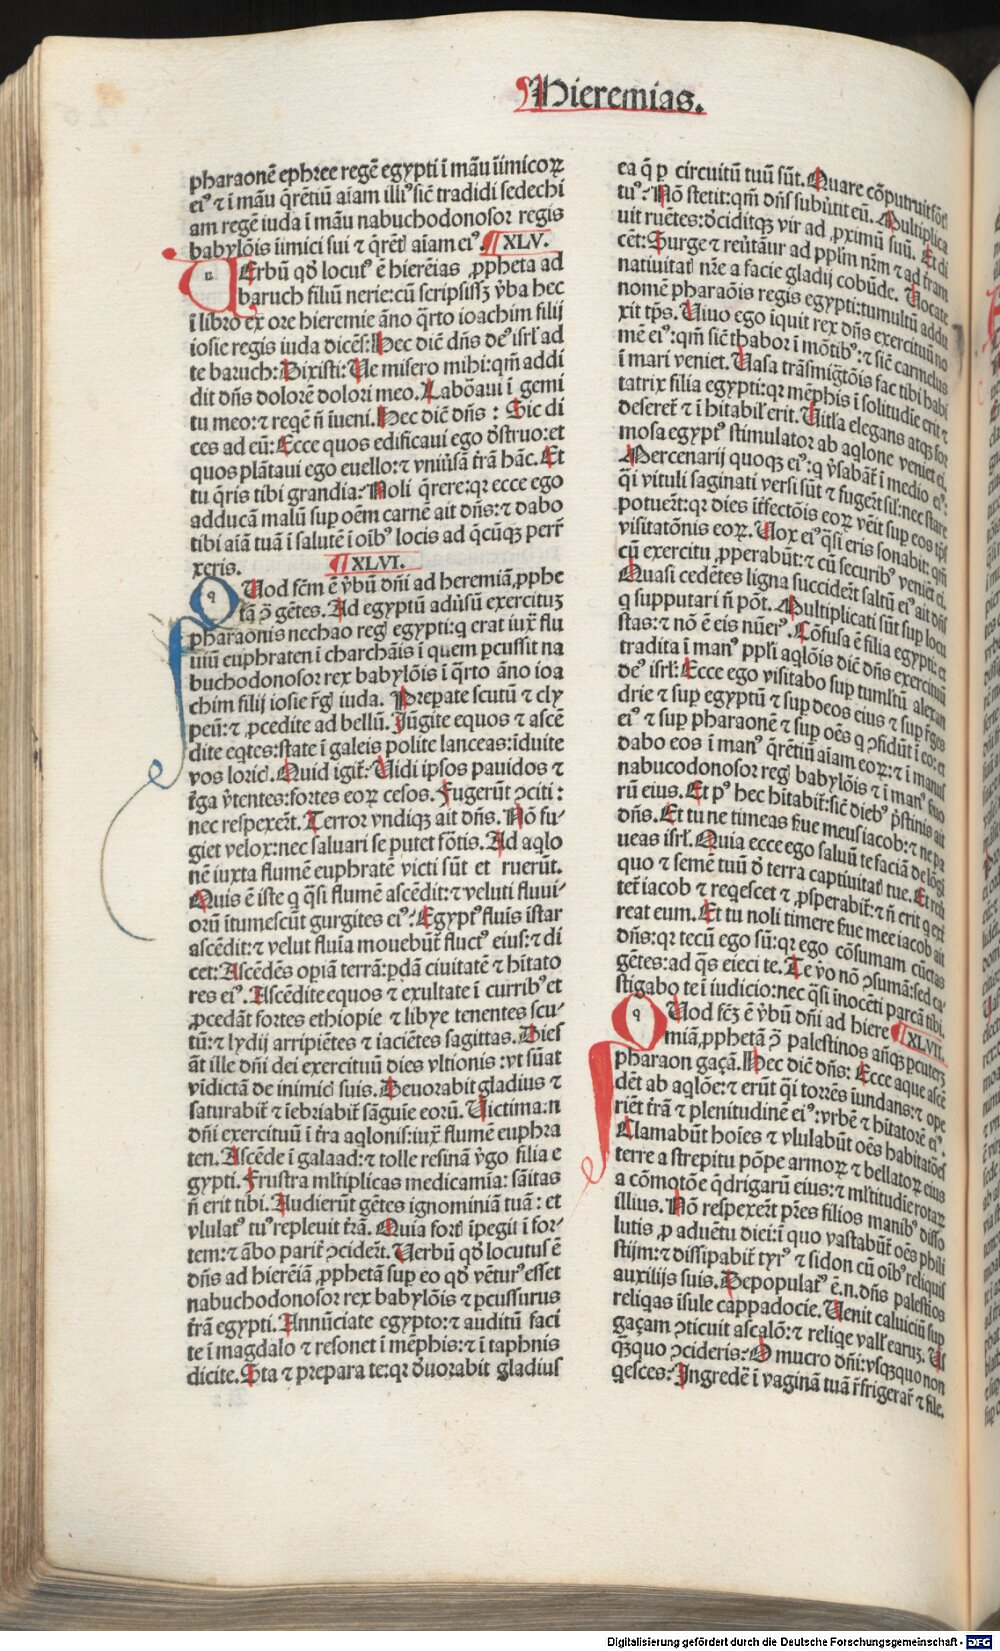 Hieremias.
pharaonē ephree regē egypti ī māu inimicoꝝ
eiꝰ ⁊ ī māu q̄rētiū aīam illiꝰ sic̄ tradidi sedechi
am regē iuda ī māu nabuchodonosor regis
babylōis iīmici sui ⁊ q̄rēt̄ aīam eiꝰ. ¶ XLV.
VErbū qd̓ locutꝰ ē hierēias ꝓpheta ad
baruch filiū nerie: cū scripsissꝫ v̓ba hec
ī libro ex ore hieremie āno q̄rto ioachim filij
iosie regis iuda dicēs: Hec diĉ dn̄s deꝰ isrl̓ ad
te baruch: Dixisti: Ve misero mihi: qm̄ addi
dit dn̄s dolorē dolori meo. Labōaui ī gemi
tu meo: ⁊ reqē n̄ īueni. Hec diĉ dn̄s: Sic di
ces ad eū: Ecce quos edificaui ego dʼstruo: et
quos plātaui ego euello: ⁊ vniūsā t̄rā hāc. Et
tu q̄ris tibi grandia? Noli q̄rere: qꝛ ecce ego
adducā malū sup oēm carnē ait dn̄s: ⁊ dabo
tibi aīā tuā ī salutē ī oībꝰ locis ad q̄cūqꝫ perr̄
xeris. ¶ XLVI.
QVod fc̄m ē v̓bū dn̄i ad heremiā ꝓphe
tā ꝯ̄ gētes. Ad egyptū adūsū exercituꝫ
pharaonis nechao reḡ egypti: q erat iux̄ flu
uiū euphraten ī charchāis ī quem pcussit na
buchodonosor rex babylōis ī q̄rto āno ioa
chim filij iosie r̄ḡ iuda. Prepate scutū ⁊ cly
peū: ⁊ ꝓcedite ad bellū. Jūgite equos ⁊ ascē
dite eqtes: state ī galeis polite lanceas: īduite
vos loric̄. Quid igit̄? Vidi ipsos pauidos ⁊
t̄ga v̓tentes: fortes eoꝝ cesos. Fugerūt ꝯciti:
nec respexer̄t. Terror vndiqꝫ ait dn̄s. Nō fu⸗
giet velox: nec saluari se putet fōtis. Ad aqlo
nē iuxta flumē euphratē victi sūt et ruerūt.
Quis ē iste q q̄si flumē ascēdit: ⁊ veluti fluui⸗
orū ītumescūt gurgites eiꝰ? Egyptꝰ fluīs īstar
ascēdit: ⁊ velut flum̄a mouebūt̄ fluctꝰ eius: ⁊ di
cet: Ascēdēs opiā terrā: pdā ciuitatē ⁊ hītato
res eiꝰ. Ascēdite equos ⁊ exultate ī curribꝰ et
ꝓcedāt fortes ethiopie ⁊ libye tenentes scu⸗
tū: ⁊ lydij arripiētes ⁊ iaciētes sagittas. Dies
āt ille dn̄i dei exercituū dies vltionis: vt sūat
vīdictā de inimic̄ suis. Deuorabit gladius ⁊
saturabit̄ ⁊ īebriabit̄ sāguīe eorū. Victima .n
dn̄i exercituū ī t̄ra aqlonis: iux̄ flumē euphra
ten. Ascēde ī galaad: ⁊ tolle resinā v̓go filia e
gypti. Frustra ml̓tiplicas medicamīa: sāitas
n̄ erit tibi. Audierūt gētes ignominiā tuā: et
vlulatꝰ tuꝰ repleuit t̄rā. Quia fort̄ īpegit ī for⸗
tem: ⁊ ābo parit̄ ꝯcider̄t. Verbū qd̓ locutus ē
dn̄s ad hierēiā ꝓphetā sup eo qd̓ vēturꝰ esset
nabuchodonosor rex babylōis ⁊ pcussurus
t̄rā egypti. Annūciate egypto: ⁊ auditū faci
te ī magdalo ⁊ resonet ī mēphis: ⁊ ī taphnis
dicite. Sta ⁊ prepara te: qꝛ dʼuorabit gladius
ea q̄ p circuitū tuū sūt. Quare cōputruit fōt̄
tuꝰ? Nō stetit: qm̄ dn̄s subūtit eū. Multiplica
uit ruētes: dʼciditqꝫ vir ad ꝓximū suū. Et di
cēt: Surge ⁊ reūtāur ad pplm̄ nr̄m ⁊ ad t̄ram
natiuitat̄ nr̄e a facie gladij cobūde. Vocate
nomē pharaōis regis egypti: tumultū addu
xit tp̄s. Viuo ego iquit rex dn̄s exercituū no
mē eiꝰ: qm̄ sic̄ thabor ī mōtibꝰ: ⁊ sic̄ carmelus
ī mari veniet. Vasa trāsmigr̄tōis fac tibi habi
tatrix filia egypti: qꝛ mēphis ī solitudīe erit ⁊
deseret̄ ⁊ ī hitabil̓ erit. Vitl̓a elegans atqꝫ for
mosa egyptꝰ stimulator ab aqlone veniet ei.
Mercenarij quoqꝫ eiꝰ: q v̓sabāt̄ ī medio eiꝰ:
q̄i vituli saginati versi sūt ⁊ fuger̄t sil̓: nec stare
potuer̄t: qꝛ dies īt̄fectōis eoꝝ vēit sup eos tp̄s
visitatōnis eoꝝ. Vox eiꝰ q̄si eris sonabit: qm̄
cū exercitu ꝓperabūt: ⁊ cū securibꝰ veniēt ei.
Quasi cedētes ligna succider̄t saltū eiꝰ ait dn̄s
q supputari n̄ pōt. Multiplicati sūt sup locu
stas: ⁊ nō ē eis nūerꝰ. Cōfusa ē filia egypti: et
tradita ī manꝰ ppl̓i aqlōis diĉ dn̄s exercituū
deꝰ isrl̓: Ecce ego visitabo sup tumltū alexan
drie ⁊ sup egyptū ⁊ sup deos eius ⁊ sup r̄ges
eiꝰ ⁊ sup pharaonē ⁊ sup oēs q ꝯfidūt ī eo: et
dabo eos ī manꝰ q̄rētiū aīam eoꝝ: ⁊ ī manus
nabucodonosor reḡ babylōis ⁊ ī manꝰ suo
rū eius. Et pꝰ hec hītabit̄: sic̄ diebꝰ p̄stinis ait
dn̄s. Et tu ne timeas s̄rue meus iacob: ⁊ ne pa
ueas isrl̓. Quia ecce ego saluū te faciā de lōgī
quo ⁊ semē tuū dʼ terra captiuitat̄ tue. Et reu̓
tet̄ iacob ⁊ reqescet ⁊ ꝓsperabit̄: ⁊ n̄ erit q ext̄
reat eum. Et tu noli timere s̄rue mee iacob ait
dn̄s: qꝛ tecū ego sū: qꝛ ego cōsumam cūctas
gētes: ad q̄s eieci te. Te v̓o nō ꝯsumā: sed ca⸗
stigabo te ī iudicio: nec q̄si inocēti parcā tibi.
QVod fc̄ꝫ ē v̓bū dn̄i ad hiere ¶ XLVII.
miā ꝓphetā ꝯ̄ palestinos añqꝫ pcuterꝫ
pharaon gaçā. Hec diĉ dn̄s: Ecce aque ascē
dēt ab aqlōe: ⁊ erūt q̄i torrēs iundans: ⁊ ope
riēt t̄rā ⁊ plenitudinē eiꝰ: vrbē ⁊ hitatorē eiꝰ.
Clamabūt hoīes ⁊ vlulabūt oēs habitatōes
terre a strepitu pōpe armoꝝ ⁊ bellatoꝝ eius
a cōmotōe q̄drigarū eius: ⁊ ml̓titudīe rotaꝝ
illius. Nō respexer̄t pr̄es filios manibꝰ disso
lutis ꝓ aduētu diei: ī quo vastabūt̄ oēs phili
stijm: ⁊ dissipabit̄ tyrꝰ ⁊ sidon cū oībꝰ reliquis
auxilijs suis. Depopulatꝰ ē .n. dn̄s palestios
reliqas īsule cappadocie. Venit caluiciū sup
gaçam ꝯticuit ascalō: ⁊ reliqe vall̓ earuꝫ. Vs
qꝫquo ꝯcideris? O mucro dn̄i: vsqꝫquo non
qesces? Jngredē ī vaginā tuā r̄frigerar̄ ⁊ sile.
Digitalisierung gefördert durch die Deutsche Forschungsgemeinschaft - DFG